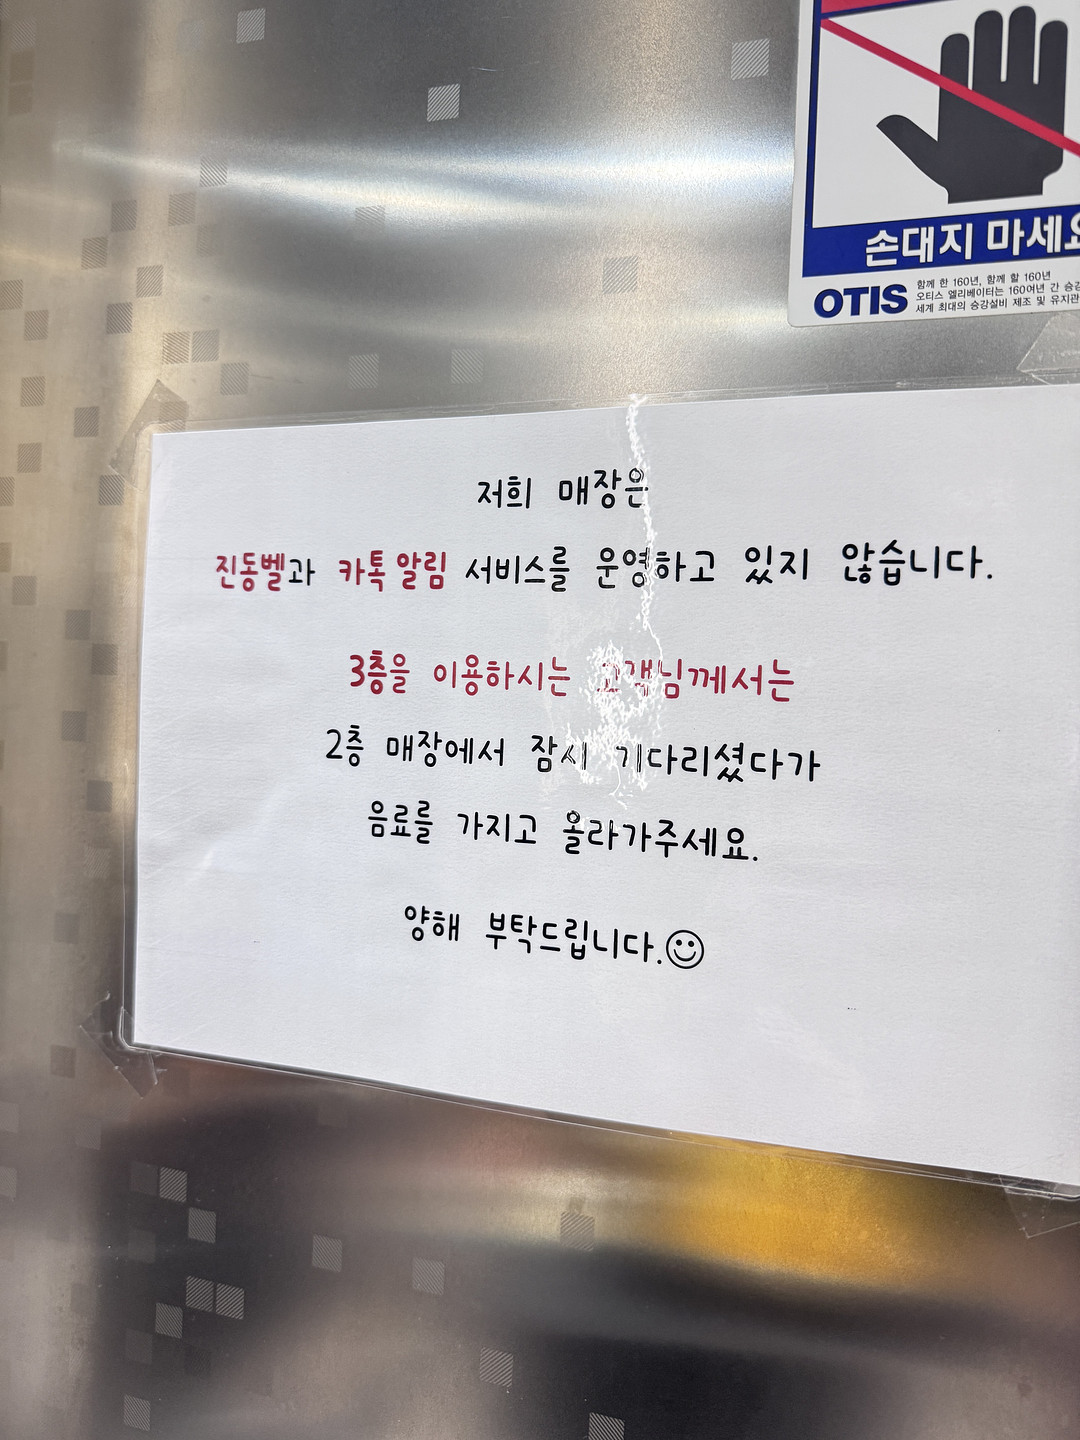 손대지 마세요
OTIS
함께 한 160년, 함께 할 160년
오티스 엘리베이터는 160여년 간 승강
세계 최대의 승강설비 제조 및 유지관
저희 매장은
진동벨과 카톡 알림 서비스를 운영하고 있지 않습니다.
3층을 이용하시는 고객님께서는
2층 매장에서 잠시 기다리셨다가
음료를 가지고 올라가주세요.
양해 부탁드립니다.☺